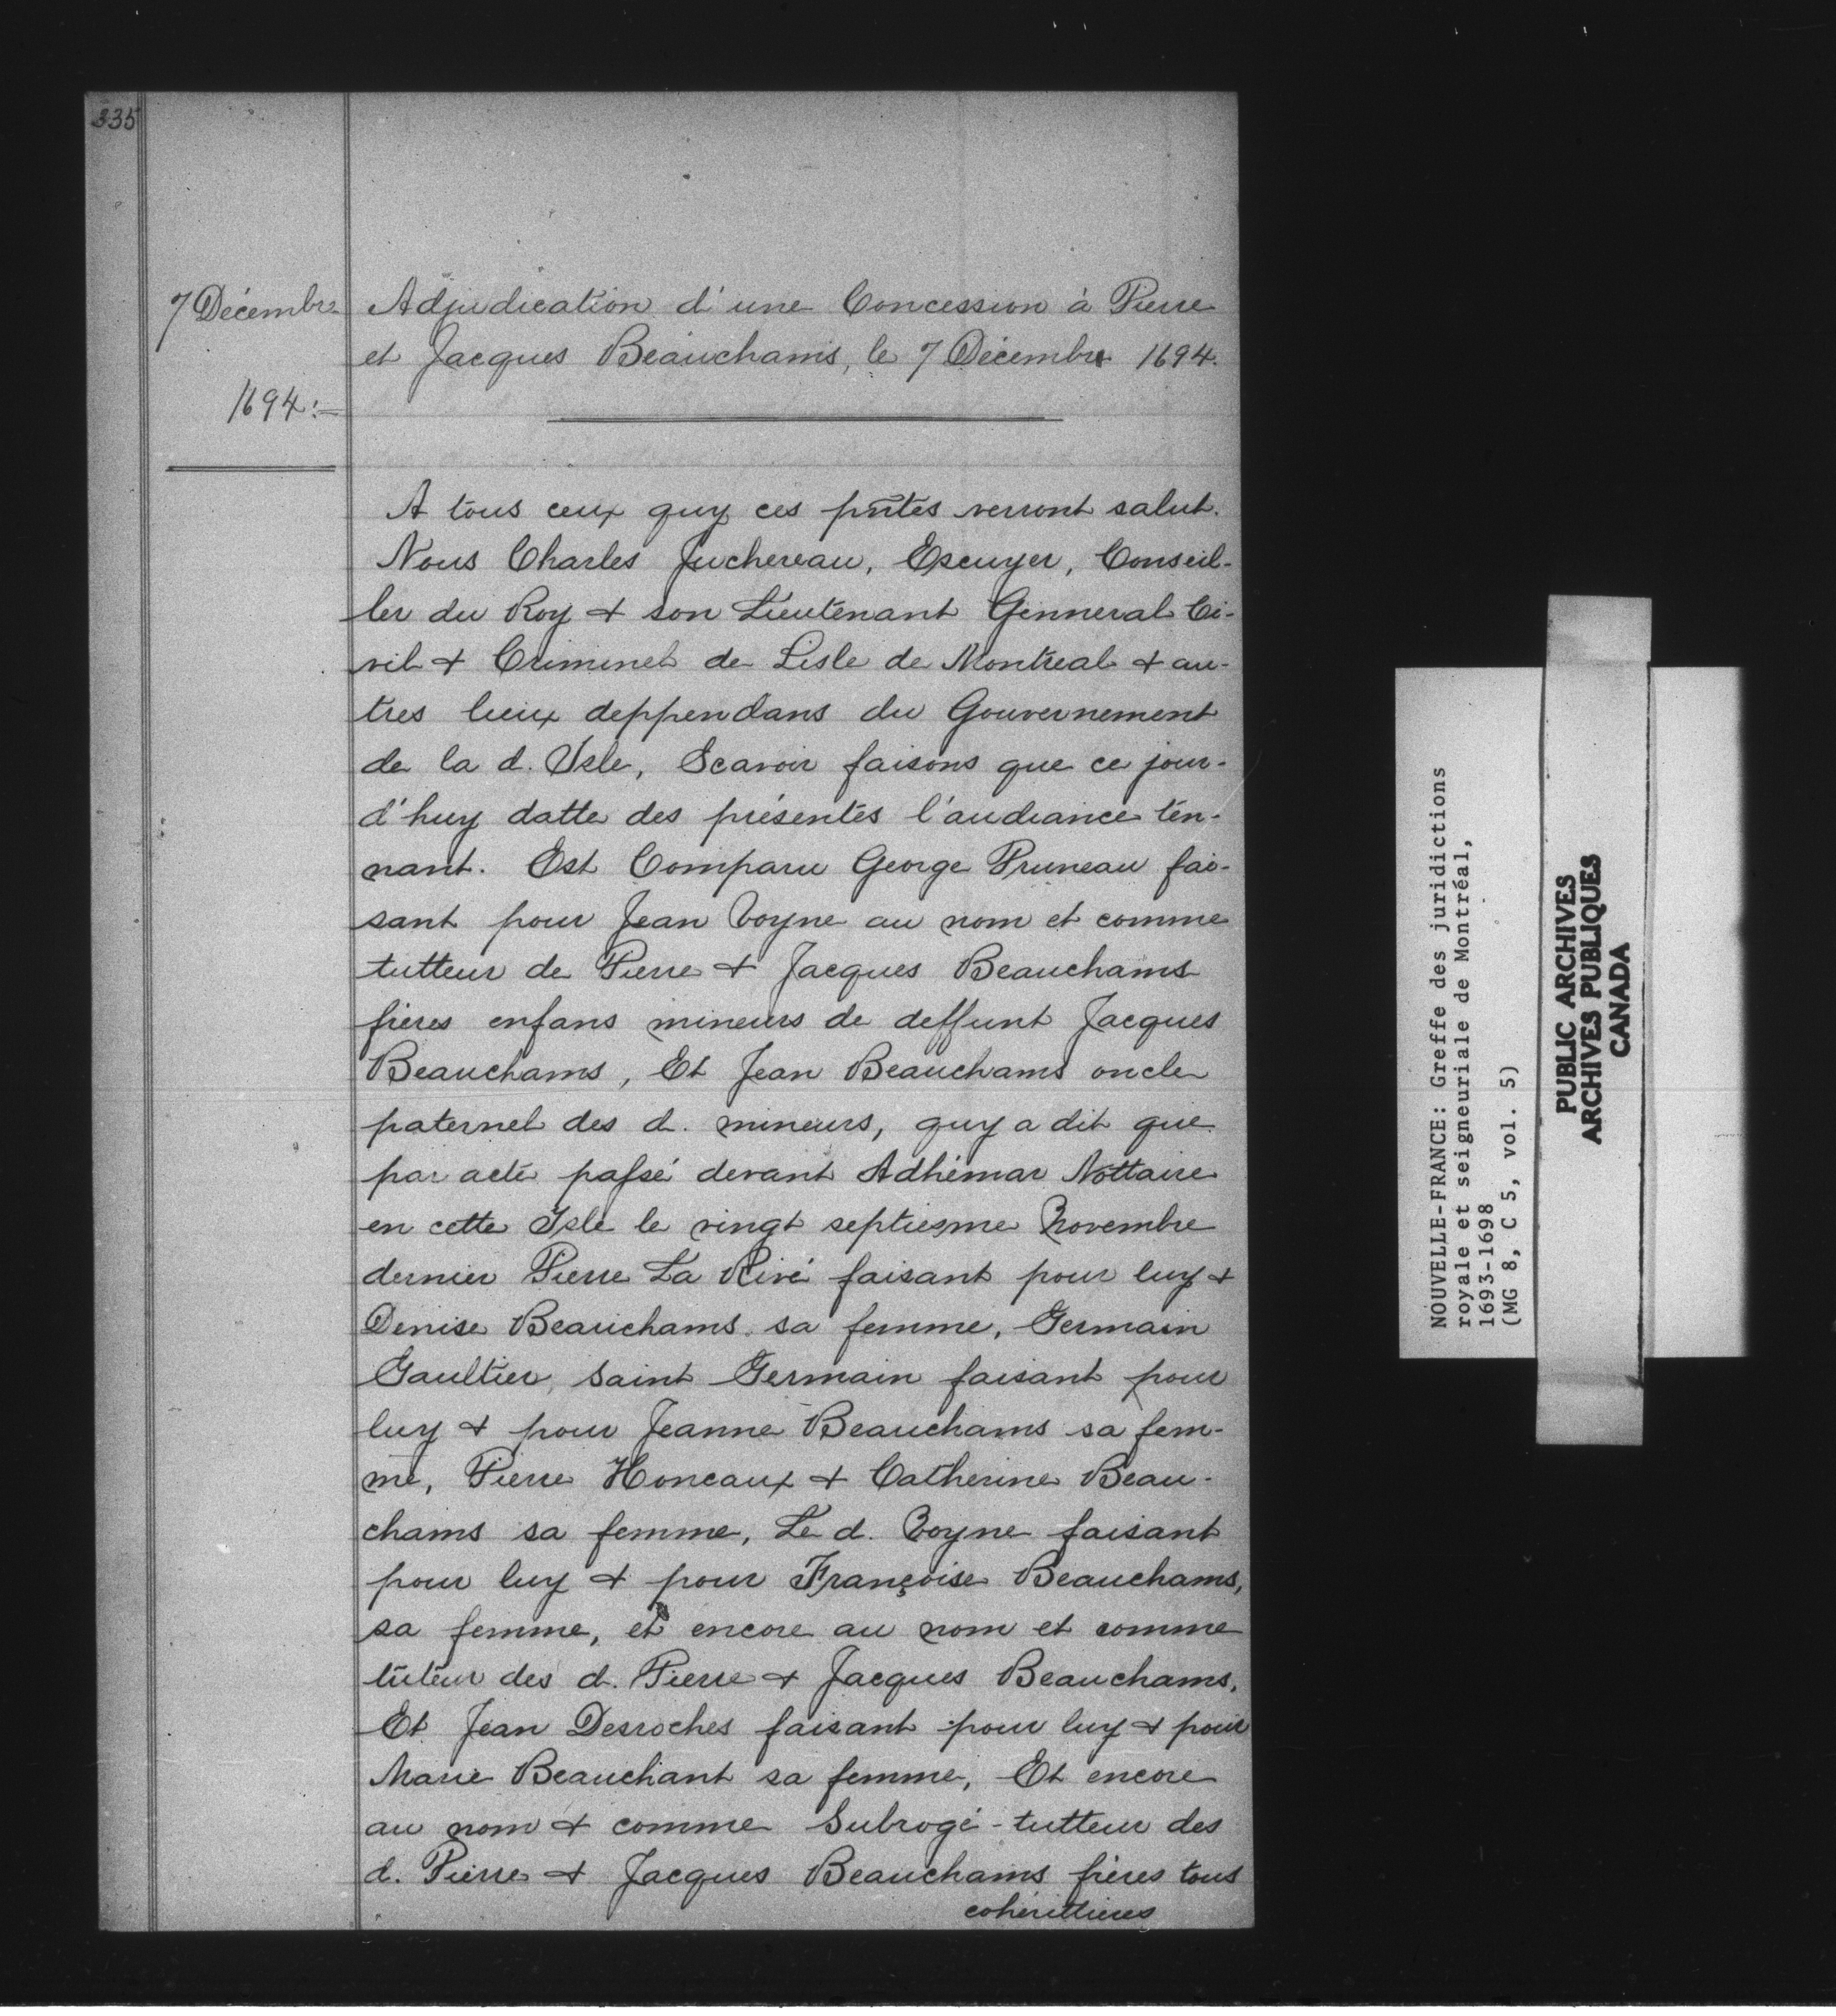 335
7 Décembre
1694:—
Adjudication d'une Concession à Pierre
et Jacques Beauchams, le 7 Décembre 1694.
A tous ceux quy ces pñtes verront salut.
Nous Charles Juchereau, Escuyer, Conseil-
ler du Roy & son Lieutenant Genneral Ci-
vil & Criminel de Lisle de Montreal & au-
tres lieux deppendans du Gouvernement
de la d. Isle, Scavoir faisons que ce jour-
d'huy datte des présentes l'audiance ten-
nant. Est Comparu George Pruneau fai-
sant pour Jean Voyne au nom et comme
tutteur de Pierre & Jacques Beauchams
frères enfans mineurs de deffunt Jacques
Beauchams, Et Jean Beauchams oncle
paternel des d. mineurs, quy a dit que
par acte passé devant Adhémar Nottaire
en cette Isle le vingt septiesme Novembre
dernier Pierre La Rivé faisant pour luy &
Denise Beauchams sa femme, Germain
Gaultier, Saint Germain faisant pour
luy & pour Jeanne Beauchams sa fem-
me, Pierre Honcaux & Catherine Beau-
chams sa femme, Le d. Voyne faisant
pour luy & pour Françoise Beauchams,
sa femme, et encore au nom et comme
tuteur des d. Pierre & Jacques Beauchams,
Et Jean Desroches faisant pour luy & pour
Marie Beauchant sa femme, Et encore
au nom & comme Subrogé-tutteur des
d. Pierre & Jacques Beauchams frères tous
cohérittieres
NOUVELLE-FRANCE: Greffe des juridictions
royale et seigneuriale de Montréal,
1693-1698
(MG 8, C 5, vol. 5)
PUBLIC ARCHIVES
ARCHIVES PUBLIQUES
CANADA